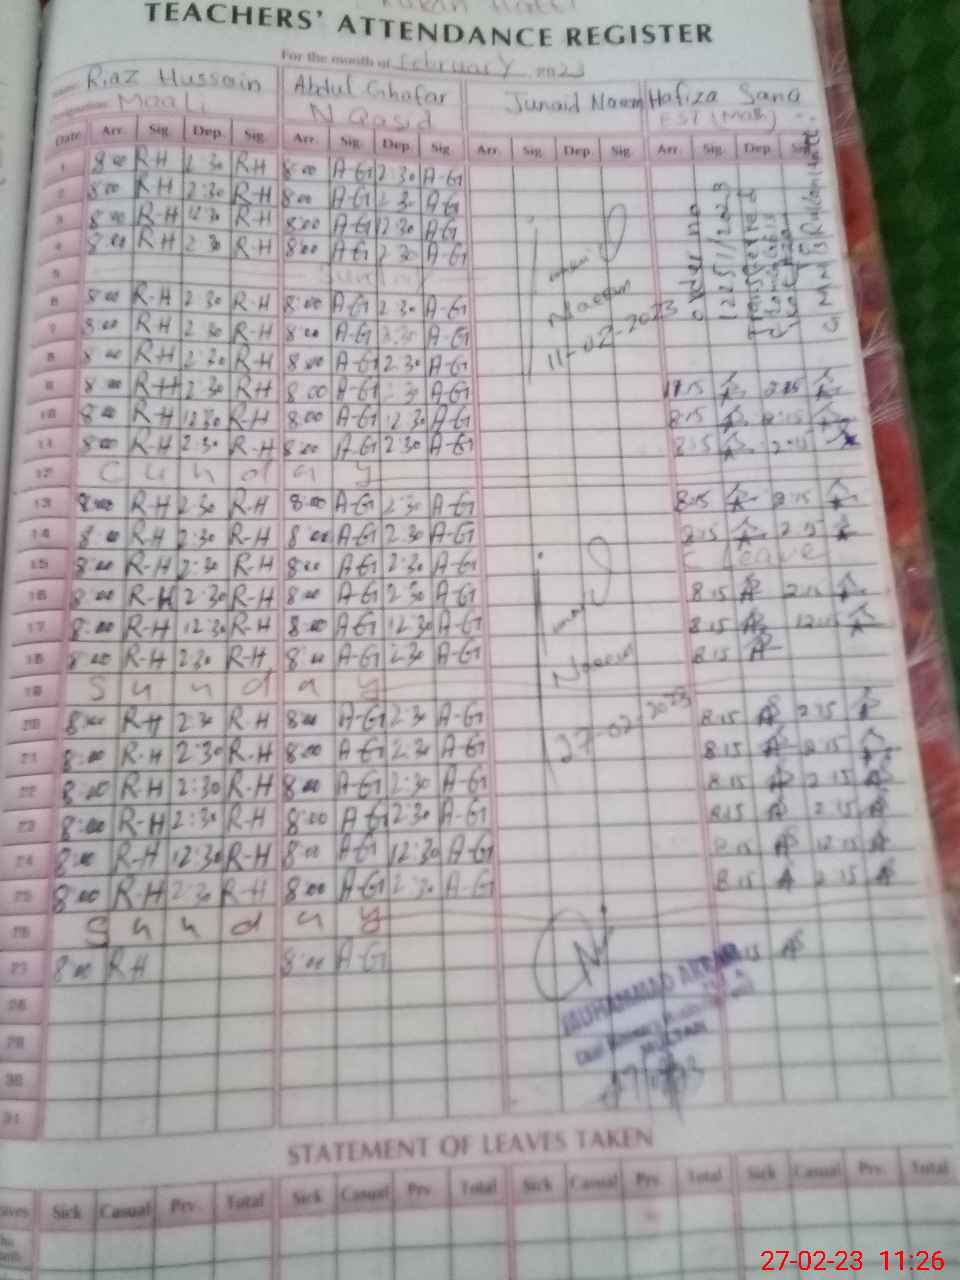 TEACHERS' ATTENDANCE REGISTER
For the month of February 2023
Riaz Hussain Abdul Ghafar Junaid Naeem Hafiza Sana
Maali N Qasid EST (Math)
Date Arr. Sig. Dep. Sig. Arr. Sig. Dep. Sig. Arr. Sig. Dep. Sig. Arr. Sig. Dep. Sig.
1 8:00 R-H 2:30 R-H 8:00 A-G 2:30 A-G
2 8:00 R-H 2:30 R-H 8:00 A-G 2:30 A-G
3 8:00 R-H 12:30 R-H 8:00 A-G 12:30 A-G
4 8:00 R-H 2:30 R-H 8:00 A-G 2:30 A-G
5 Sunday
6 8:00 R-H 2:30 R-H 8:00 A-G 2:30 A-G
7 8:00 R-H 2:30 R-H 8:00 A-G 2:30 A-G
Naeem
11-02-2023
8 8:00 R-H 2:30 R-H 8:00 A-G 2:30 A-G
9 8:00 R-H 2:30 R-H 8:00 A-G 2:30 A-G
10 8:00 R-H 12:30 R-H 8:00 A-G 12:30 A-G 8:15
11 8:00 R-H 2:30 R-H 8:00 A-G 2:30 A-G 8:15
12 Sunday
13 8:00 R-H 2:30 R-H 8:00 A-G 2:30 A-G 8:15 2:15
14 8:00 R-H 2:30 R-H 8:00 A-G 2:30 A-G 8:15
15 8:00 R-H 2:30 R-H 8:00 A-G 2:30 A-G C leave
16 8:00 R-H 2:30 R-H 8:00 A-G 2:30 A-G 8:15 2:15
17 8:00 R-H 12:30 R-H 8:00 A-G 12:30 A-G 8:15 12:15
18 8:00 R-H 2:30 R-H 8:00 A-G 2:30 A-G 8:15
Naeem
19 Sunday
20 8:00 R-H 2:30 R-H 8:00 A-G 2:30 A-G 8:15 2:15
27-02-2023
21 8:00 R-H 2:30 R-H 8:00 A-G 2:30 A-G 8:15 2:15
22 8:00 R-H 2:30 R-H 8:00 A-G 2:30 A-G 8:15 2:15
23 8:00 R-H 2:30 R-H 8:00 A-G 2:30 A-G 8:15 2:15
24 8:00 R-H 12:30 R-H 8:00 A-G 12:30 A-G 8:15 12:15
25 8:00 R-H 2:30 R-H 8:00 A-G 2:30 A-G 8:15 2:15
26 Sunday
27 8:00 R-H 8:00 A-G
MUHAMMAD
28
29
MULTAN
30
31
STATEMENT OF LEAVES TAKEN
Sick Casual Prv. Total Sick Casual Prv. Total Sick Casual Prv. Total Sick Casual Prv. Total
27-02-23 11:26